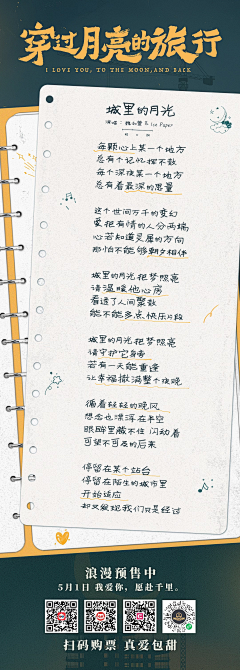 穿过月亮的旅行
I LOVE YOU, TO THE MOON, AND BACK
城里的月光
每颗心上某一个地方
总有个记忆挥不散
每个深夜某一个地方
总有着最深的思量
这个世间万千的变幻
爱把有情的人分两端
心若知道灵犀的方向
那怕不能够朝夕相伴
城里的月光把梦照亮
请温暖他心房
看透了人间聚散
能不能多点快乐片段
城里的月光把梦照亮
请守护它身旁
若有一天能重逢
让幸福撒满整个夜晚
循着轻轻的晚风
想念也漂浮在半空
眼眸里藏不住 闪动着
可望不可及的后来
停留在某个站台
停留在陌生的城市里
开始适应
却又发现我们只是经过
浪漫预售中
5月1日 我爱你，愿赴千里。
扫码购票 真爱包甜